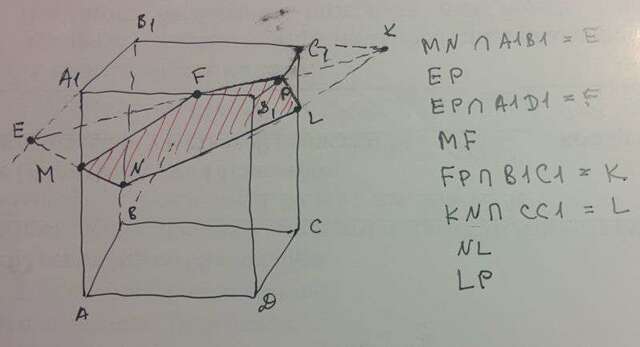 B1
C1
K
A1
F
P
D1
E
L
M
N
B
C
A
D
MN ∩ A1B1 = E
EP
EP ∩ A1D1 = F
MF
FP ∩ B1C1 = K
KN ∩ CC1 = L
NL
LP